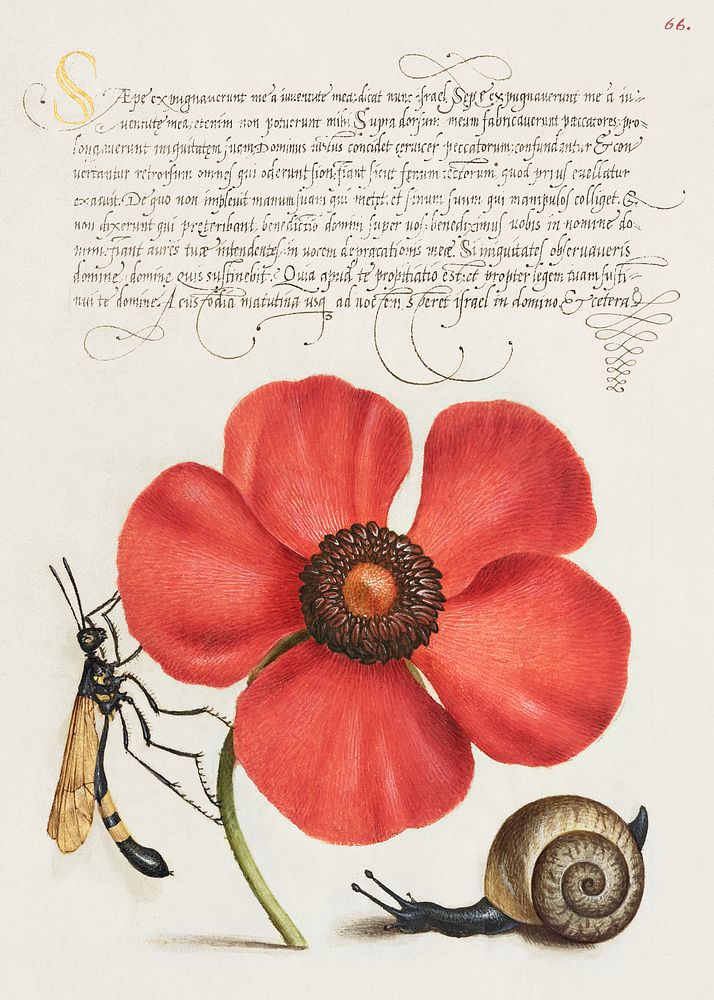 66.
Sæpe expugnaverunt me a iuventute mea: dicat nunc israel. Sepe expugnaverunt me a iu-
ventute mea, etenim non potuerunt mihi Supra dorsum meum fabricaverunt peccatores: pro-
longaverunt iniquitatem suam Dominus iustus concidet cervices peccatorum: confundantur & con
vertantur retrorsum omnes qui oderunt sion. fiant sicut fenum tectorum, quod prius evellatur
exaruit. De quo non implevit manum suam qui metet, et sinum suum qui manipulos colliget. Et
non dixerunt qui preteribant, benedictio domini super vos: benediximus vobis in nomine do-
mini. fiant aures tuæ intendentes, in vocem deprecationis meæ. Si iniquitates observaveris
domine, domine quis sustinebit? Quia apud te propitiatio est: et propter legem tuam susti-
nui te domine. A custodia matutina usq ad noctem, speret israel in domino. & cetera